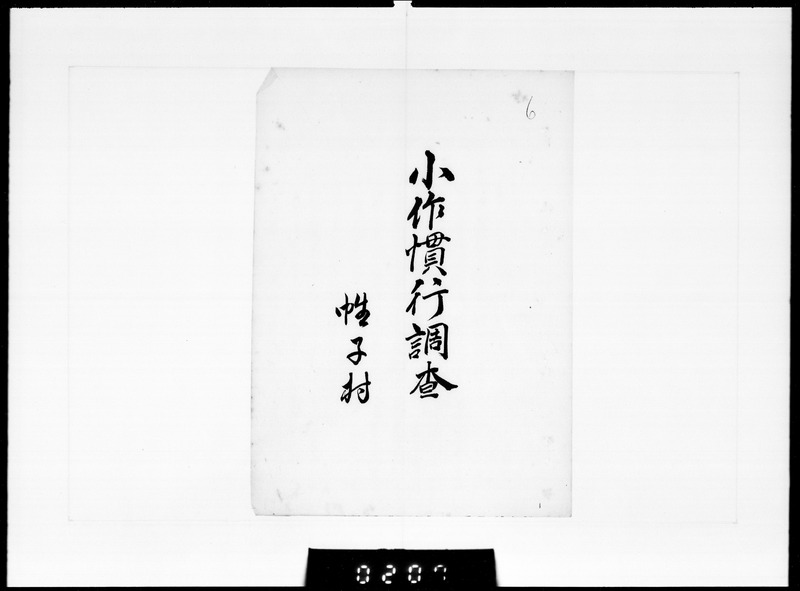 6
小作慣行調査
帷子村
0207